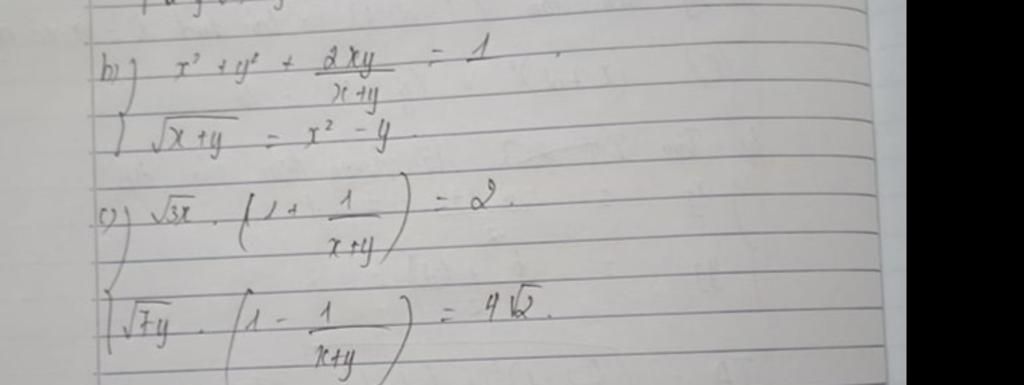 b) { x² + y² + 2xy/(x+y) = 1
√(x+y) = x² - y
c) { √(3x) . (1 + 1/(x+y)) = 2.
√(7y) . (1 - 1/(x+y)) = 4√2.